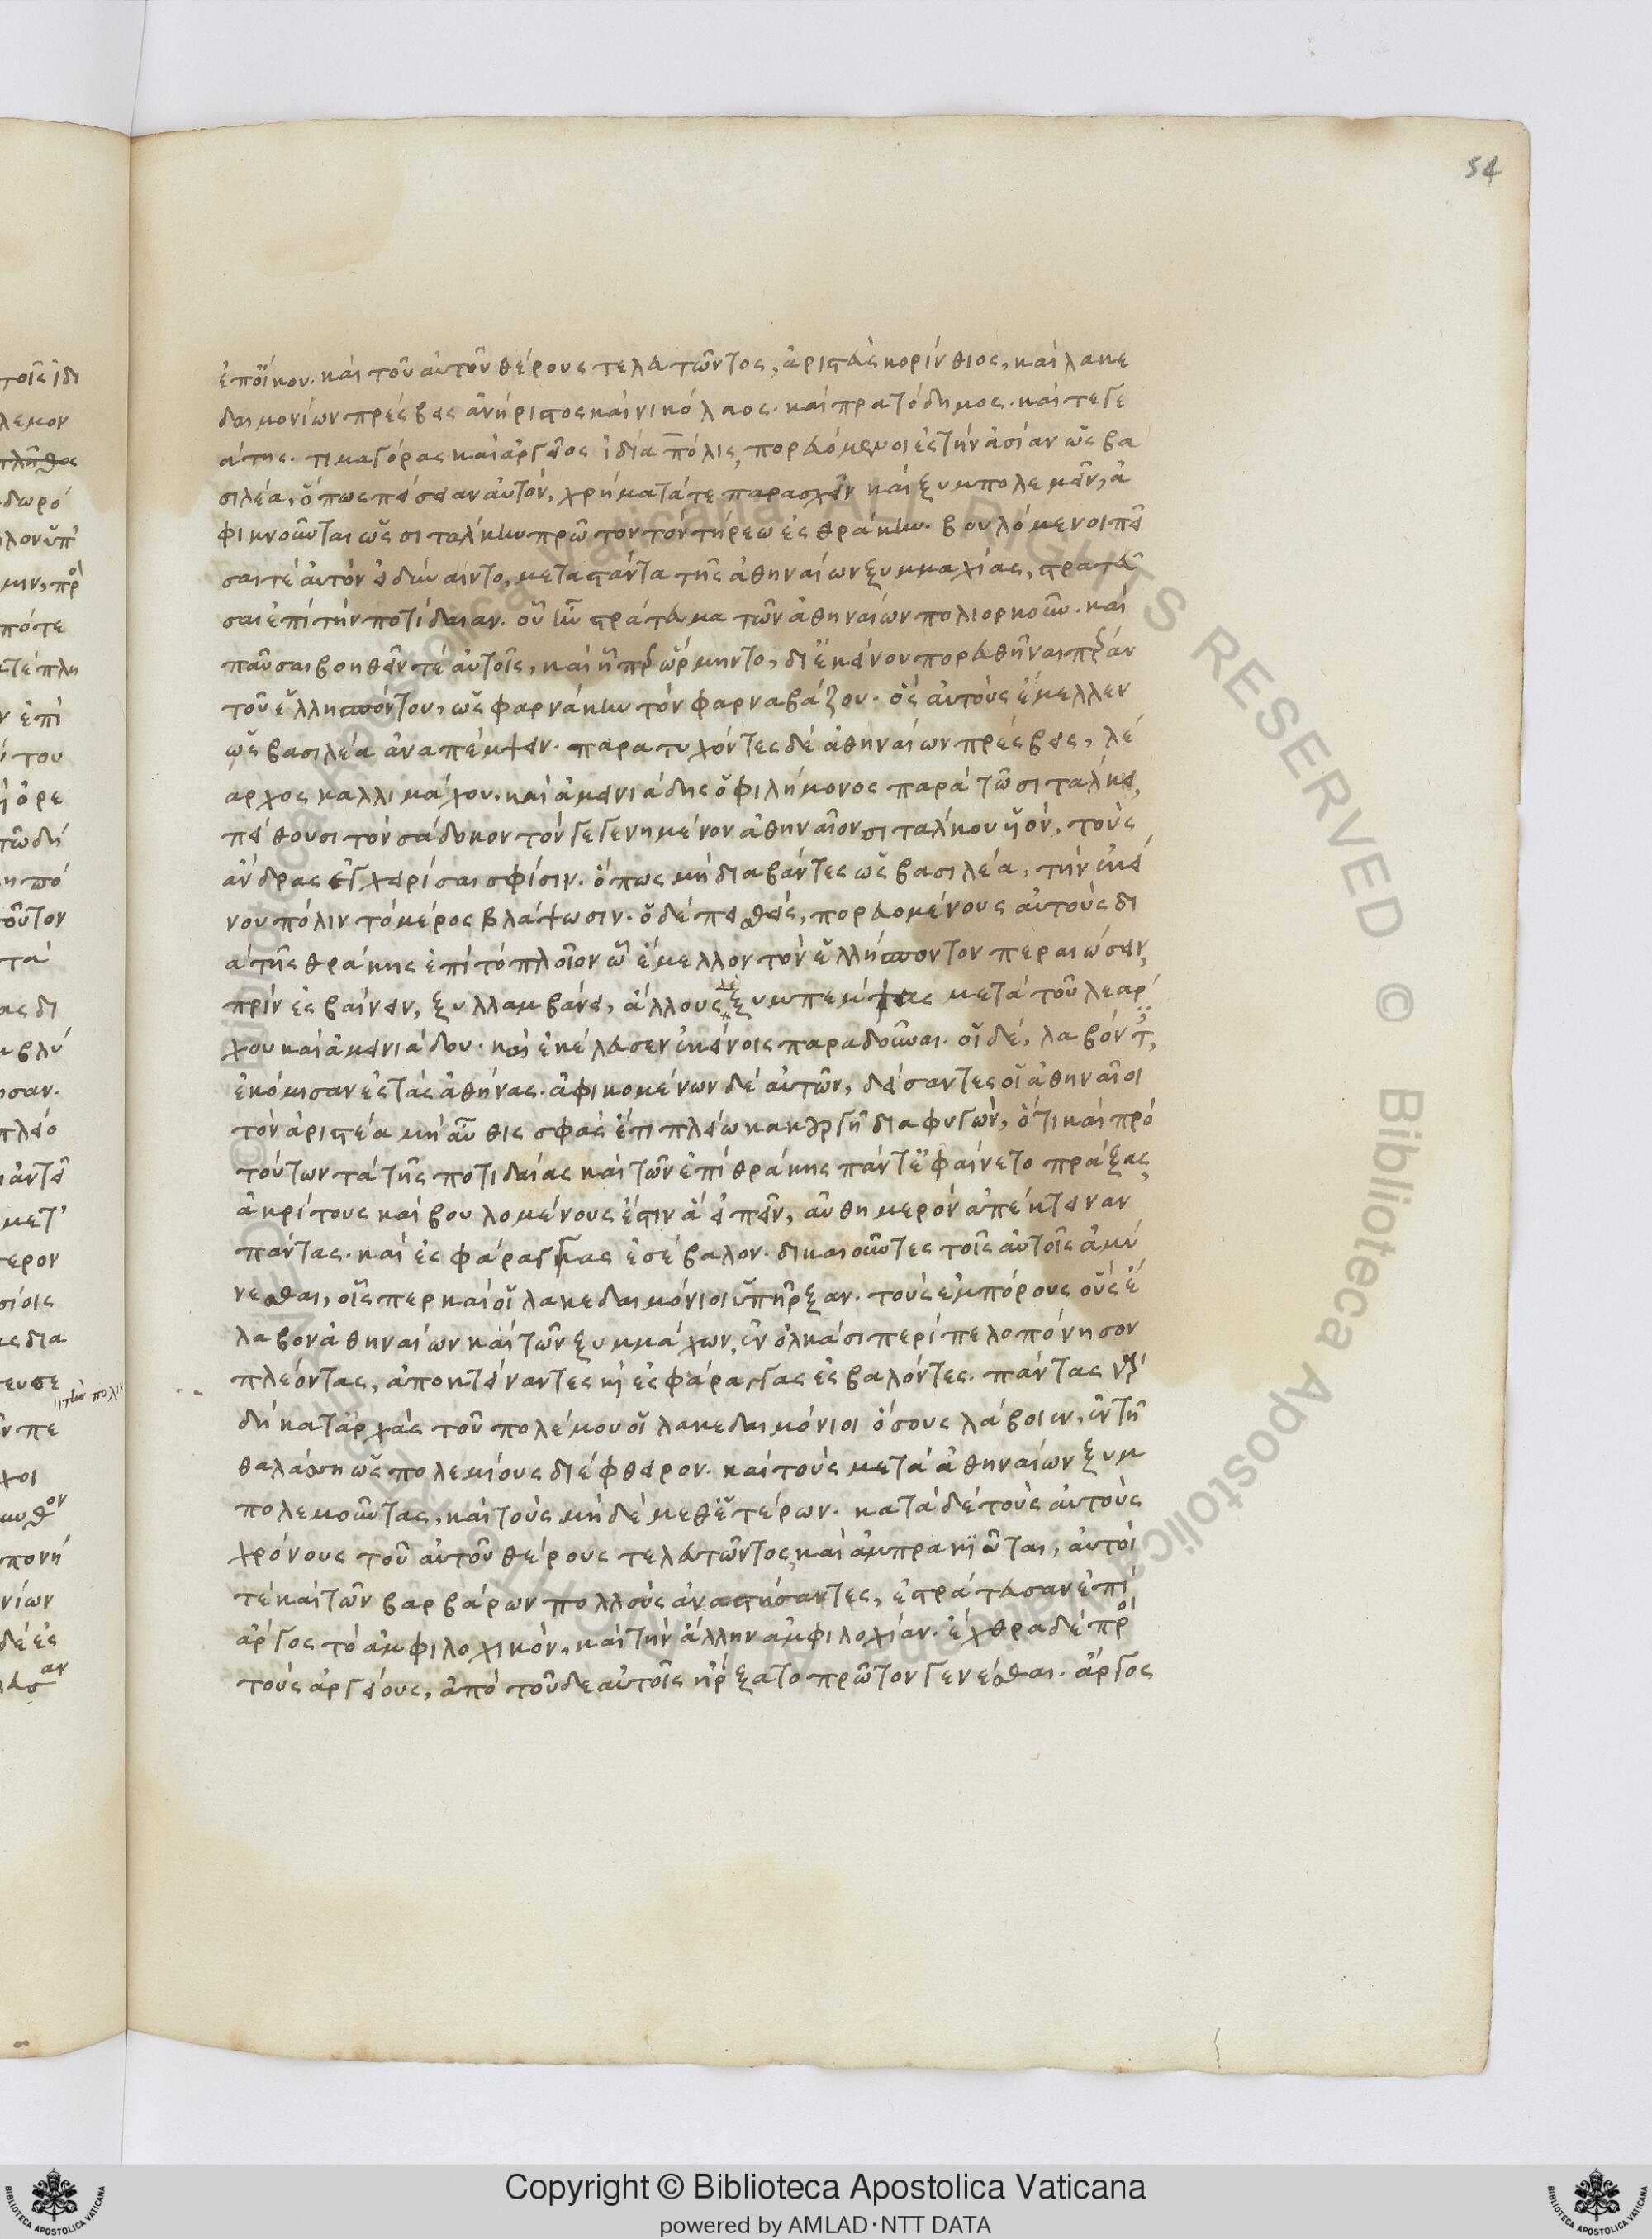 54
ἐποίκου. καὶ τοῦ αὐτοῦ θέρους τελευτῶντος, ἀριστεὺς κορίνθιος, καὶ λακε
δαιμονίων πρέσβεις ἀνήριστος καὶ νικόλαος. καὶ πρατόδημος. καὶ τεγε
άτης. τιμαγόρας καὶ ἀργεῖος ἰδία πόλις, πορευόμενοι ἐς τὴν ἀσίαν ὡς βα
σιλέα, ὅπως πείσειαν αὐτόν, χρήματά τε παρασχεῖν καὶ ξυμπολεμεῖν, ἀ
φικνοῦνται ὡς σιτάλκην πρῶτον τὸν τήρεω ἐς θράκην. βουλόμενοι πεῖ
σαι τὲ αὐτὸν εἰ δύναιντο, μεταστάντα τῆς ἀθηναίων ξυμμαχίας, στρατεῦ
σαι ἐπὶ τὴν ποτίδαιαν. οὗ ἦν στράτευμα τῶν ἀθηναίων πολιορκοῦν. καὶ
παῦσαι βοηθεῖν τὲ αὐτοῖς, καὶ ᾗπερ ὥρμηντο, δι ἐκείνου πορευθῆναι πέραν
τοῦ ἑλλησπόντου, ὡς φαρνάκην τὸν φαρναβάζου. ὃς αὐτοὺς ἔμελλεν
ὡς βασιλέα ἀναπέμψειν. παρατυχόντες δὲ ἀθηναίων πρέσβεις, λέ
αρχος καλλιμάχου. καὶ ἀμεινιάδης ὁ φιλήμονος παρὰ τῷ σιτάλκει,
πείθουσι τὸν σάδοκον τὸν γεγενημένον ἀθηναῖον σιτάλκου υἱόν, τοὺς
ἄνδρας ἐγχειρίσαι σφίσιν. ὅπως μὴ διαβάντες ὡς βασιλέα, τὴν ἐκεί
νου πόλιν τὸ μέρος βλάψωσιν. ὁ δὲ πεισθείς, πορευομένους αὐτοὺς δι
ὰ τῆς θράκης ἐπὶ τὸ πλοῖον ᾧ ἔμελλον τὸν ἑλλήσποντον περαιώσειν,
πρὶν ἐσβαίνειν, ξυλλαμβάνει, ἄλλους δὲ ξυμπέμψας μετὰ τοῦ λεάρ
χου καὶ ἀμεινιάδου. καὶ ἐκέλευσεν ἐκείνοις παραδοῦναι. οἱ δὲ, λαβόντες,
ἐκόμισαν ἐς τὰς ἀθήνας. ἀφικομένων δὲ αὐτῶν, δείσαντες οἱ ἀθηναῖοι
τὸν ἀριστέα μὴ αὖθις σφὰς ἔτι πλείω κακουργῇ διαφυγών, ὅτι καὶ πρὸ
τούτων τὰ τῆς ποτιδαίας καὶ τῶν ἐπὶ θράκης πάντ ἐφαίνετο πράξας,
ἀκρίτους καὶ βουλομένους ἔστιν ἃ εἰπεῖν, αὐθημερὸν ἀπέκτειναν
πάντας. καὶ ἐς φάραγγας ἐσέβαλον. δικαιοῦντες τοῖς αὐτοῖς ἀμύ
νεσθαι, οἷς περ καὶ οἱ λακεδαιμόνιοι ὑπῆρξαν. τοὺς ἐμπόρους οὓς ἔ
λαβον ἀθηναίων καὶ τῶν ξυμμάχων, ἐν ὁλκάσι περὶ πελοπόνησον
πλέοντας, ἀποκτείναντες καὶ ἐς φάραγγας ἐσβαλόντες. πάντας γὰρ
δὴ κατ ἀρχὰς τοῦ πολέμου οἱ λακεδαιμόνιοι ὅσους λάβοιεν, ἐν τῇ
θαλάσση ὡς πολεμίους διέφθειρον. καὶ τοὺς μετὰ ἀθηναίων ξυμ
πολεμοῦντας, καὶ τοὺς μὴ δὲ μεθ ἑτέρων. κατὰ δὲ τοὺς αὐτοὺς
χρόνους τοῦ αὐτοῦ θέρους τελευτῶντος, καὶ ἀμπρακιῶται, αὐτοί
τὲ καὶ τῶν βαρβάρων πολλοὺς ἀναστήσαντες, ἐστράτευσαν ἐπὶ
ἄργος τὸ ἀμφιλοχικὸν, καὶ τὴν ἄλλην ἀμφιλοχίαν. ἔχθρα δὲ πρὸς
τοὺς ἀργείους, ἀπὸ τοῦδε αὐτοῖς ἤρξατο πρῶτον γενέσθαι. ἄργος
Copyright © Biblioteca Apostolica Vaticana
powered by AMLAD·NTT DATA